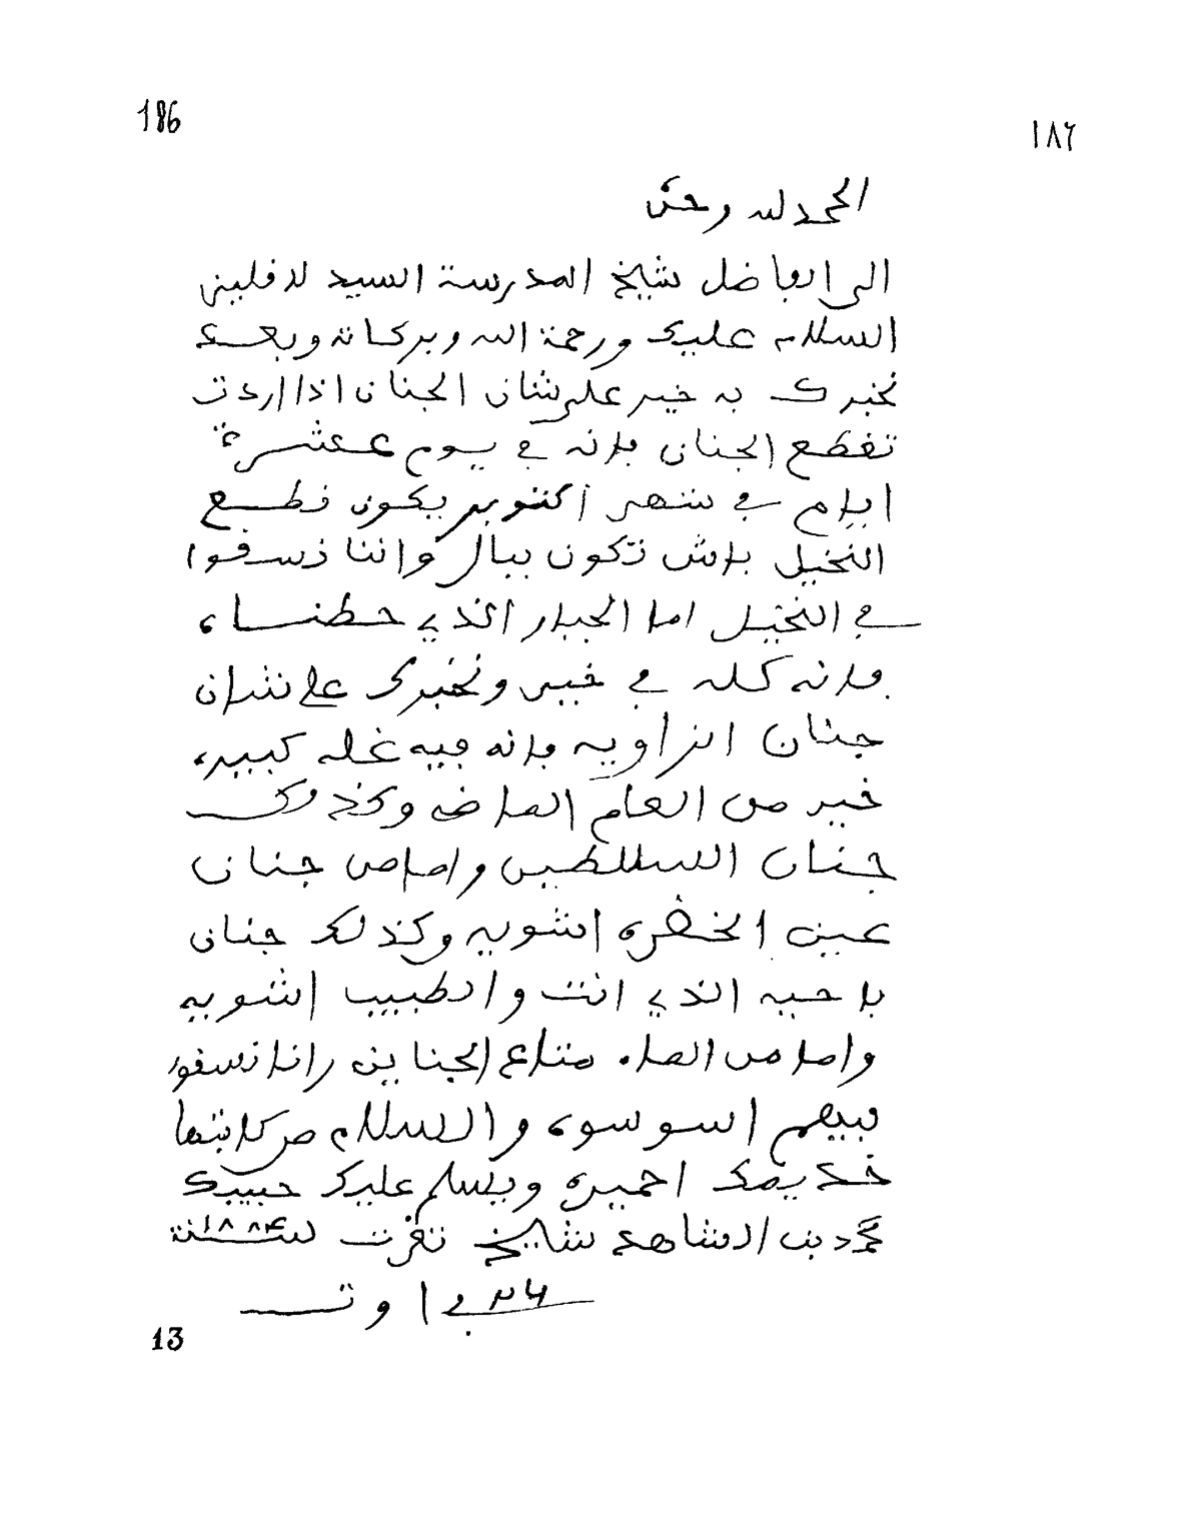 186
١٨٦
الحمد لله وحده
الى الفاضل شيخ المدرسة السيد
السلام عليك ورحمة الله وبركاته وبعد
نخبرك به خير على شان الجنان اذا اردت
تقطع الجنان فانه في يوم عشرة
ايام في شهر اكتوبر يكون قطع
النخيل باش تكون ببالك واننا نسقوا
في النخيل اما الجبار الذي حطنـاه
فانه كله في خير ونخبرك على شان
جنان الزاويه فانه فيه غله كبيره
خير من العام الماضي وكذلك
جنان السلاطين واما من جنان
عين الخضره اشويه وكذلك جنان
باحبه الذي انت والطبيب اشويه
واما من الماء متاع الجناين رانا نسقوا
فيهم اسوسوه والسلام من كاتبها
خديمك احميده ويسلم عليك حبيبك
محمد بن الشاهد شايخ تقرت لسنة ١٨٨٤
٢٤ في اوت
13